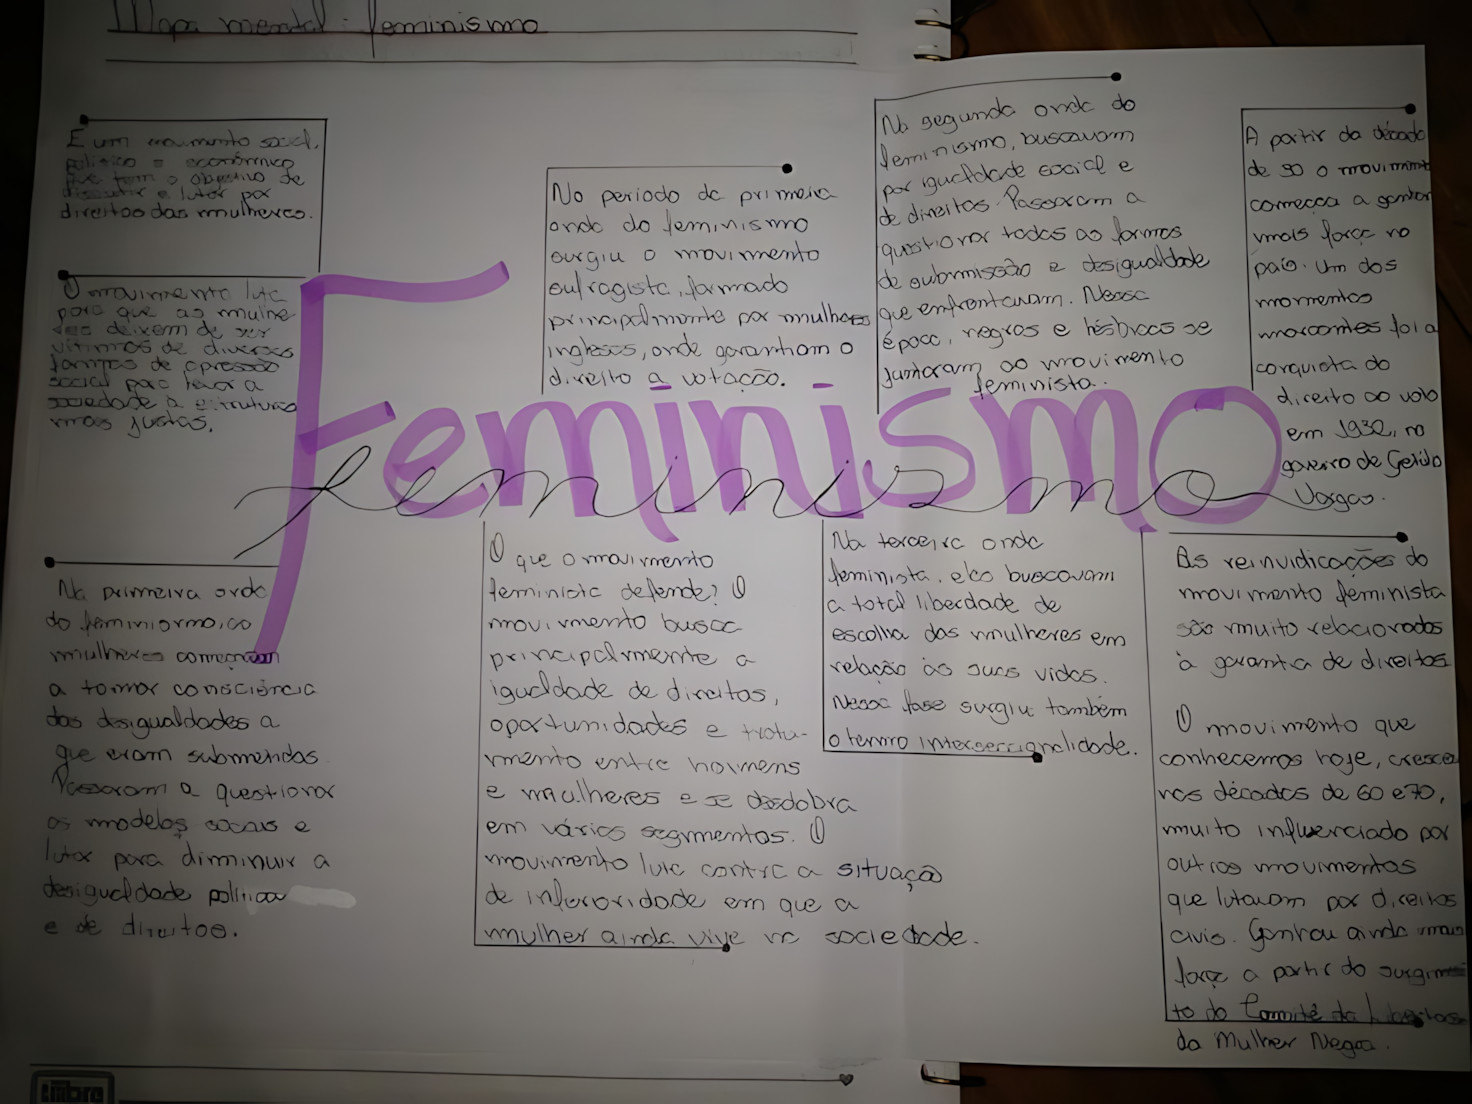 Mapa mental: feminismo
É um movimento social,
político e econômico
que tem o objetivo de
discutir e lutar por
direitos das mulheres.
O movimento luta
para que as mulhe-
res deixem de ser
vítimas de diversas
formas de opressão
social para levar a
sociedade a estruturas
mais justas.
No período da primeira
onda do feminismo
surgiu o movimento
sufragista, formado
principalmente por mulheres
inglesas, onde garantiam o
direito a votação.
Na segunda onda do
feminismo, buscavam
por igualdade social e
de direitos. Passaram a
questionar todas as formas
de submissão e desigualdade
que enfrentavam. Nessa
época, negras e hisbicas se
juntaram ao movimento
feminista.
A partir da década
de 30 o movimento
começa a ganhar
mais força no
país. Um dos
momentos
marcantes foi a
conquista do
direito ao voto
em 1932, no
governo de Getúlo
Vargas.
Feminismo
feminismo
Na primeira onda
do feminismo, as
mulheres começam
a tomar consciência
das desigualdades a
que eram submetidas
Passaram a questionar
os modelos sociais e
lutar para diminuir a
desigualdade política
e de direitos.
O que o movimento
feminista defende? O
movimento busca
principalmente a
igualdade de direitos,
oportunidades e trata-
mento entre homens
e mulheres e se desdobra
em vários segmentos. O
movimento luta contra a situação
de inferioridade em que a
mulher ainda vive na sociedade.
Na terceira onda
feminista, elas buscavam
a total liberdade de
escolha das mulheres em
relação às suas vidas.
Nessa fase surgiu também
o termo interseccionalidade.
As reinvidicações do
movimento feminista
são muito relacionados
à garantia de direitos
O movimento que
conhecemos hoje, cresceu
nas décadas de 60 e 70,
muito influenciado por
outros movimentos
que lutavam por direitos
civis. Ganhou ainda mais
força a partir do surgimen
to do Comitê da Liberdade
da Mulher Negra.